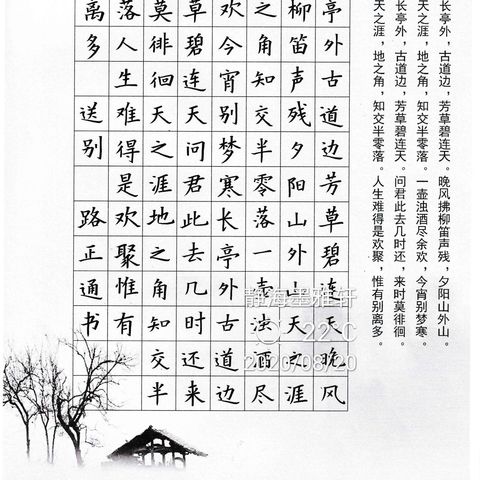 长亭外，古道边，芳草碧连天。晚风拂柳笛声残，夕阳山外山。
天之涯，地之角，知交半零落。一壶浊酒尽余欢，今宵别梦寒。
长亭外，古道边，芳草碧连天。问君此去几时还，来时莫徘徊。
天之涯，地之角，知交半零落。人生难得是欢聚，惟有别离多。
亭外古道边芳草碧连天晚风
柳笛声残夕阳山外山天之涯
之角知交半零落一壶浊酒尽
欢今宵别梦寒长亭外古道边
草碧连天问君此去几时还来
莫徘徊天之涯地之角知交半
落人生难得是欢聚惟有
离多
送别
路正通书
静海墨雅轩
22°C
2020/08/20